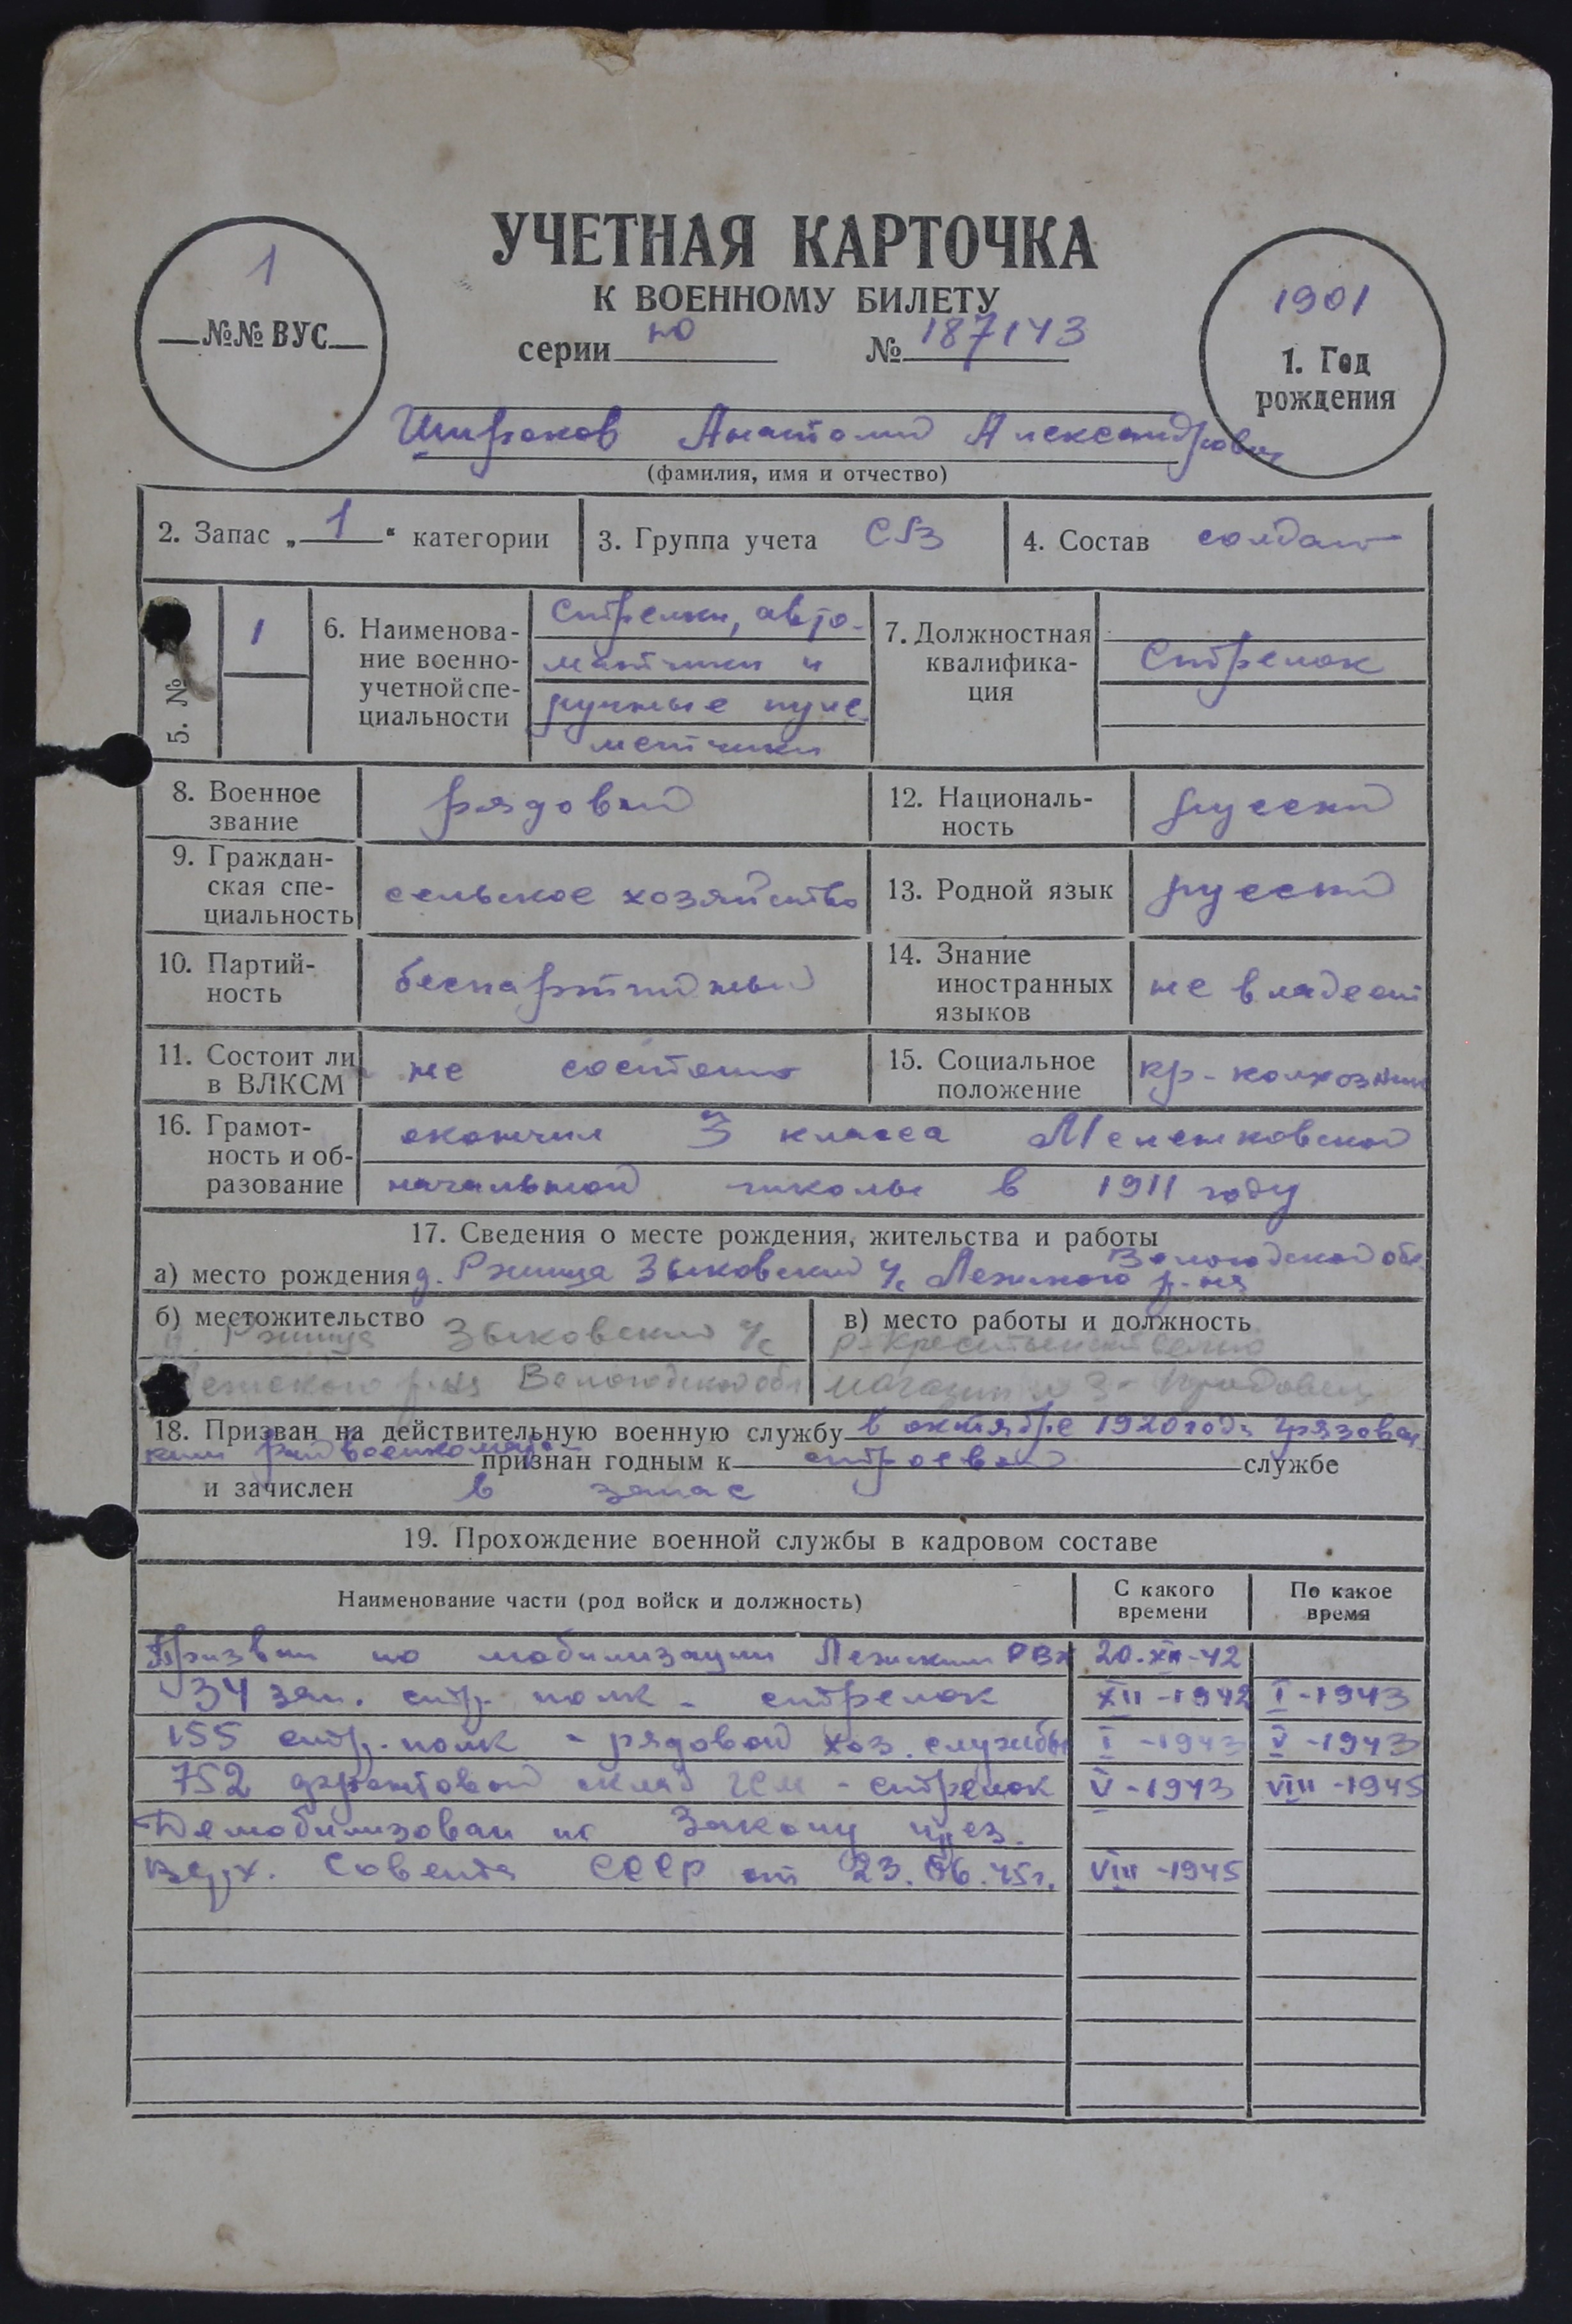 УЧЕТНАЯ КАРТОЧКА
К ВОЕННОМУ БИЛЕТУ
серии но № 187143
1
№№ ВУС
1901
1. Год
рождения
Широков Анатолий Александрович
(фамилия, имя и отчество)
2. Запас „1“ категории
3. Группа учета СВ
4. Состав солдат
5. №
1
6. Наименова-
ние военно-
учетной спе-
циальности
Стрелки, авто-
матчики и
ручные пуле
метчики
7. Должностная
квалифика-
ция
Стрелок
8. Военное
звание
рядовой
12. Националь-
ность
русский
9. Граждан-
ская спе-
циальность
сельское хозяйство
13. Родной язык
русский
10. Партий-
ность
беспартийный
14. Знание
иностранных
языков
не владеет
11. Состоит ли
в ВЛКСМ
не состоит
15. Социальное
положение
кр-колхозник
16. Грамот-
ность и об-
разование
окончил 3 класса
начальной школы в 1911 году
17. Сведения о месте рождения, жительства и работы
Вологодской обл.
а) место рождения д. Ржища Зыковский с/с Лежского р-на
б) местожительство
Ржища Зыковский с/с
Лежского р-на Вологодской обл
в) место работы и должность
магазин
18. Призван на действительную военную службу в октябре 1920 года Грязовец
ким райвоенкомато признан годным к строевой службе
и зачислен в запас
19. Прохождение военной службы в кадровом составе
Наименование части (род войск и должность)
С какого
времени
По какое
время
Призван по мобилизации Лежским РВК 20-XII-42
34 зап. стр. полк - стрелок XII-1942 I-1943
155 стр. полк - рядовой хоз. службы I-1943 V-1943
752 фронтовой склад ГСМ - стрелок V-1943 VIII-1945
Демобилизован по Закону през.
верх. Совета СССР от 23.06.45г. VIII-1945